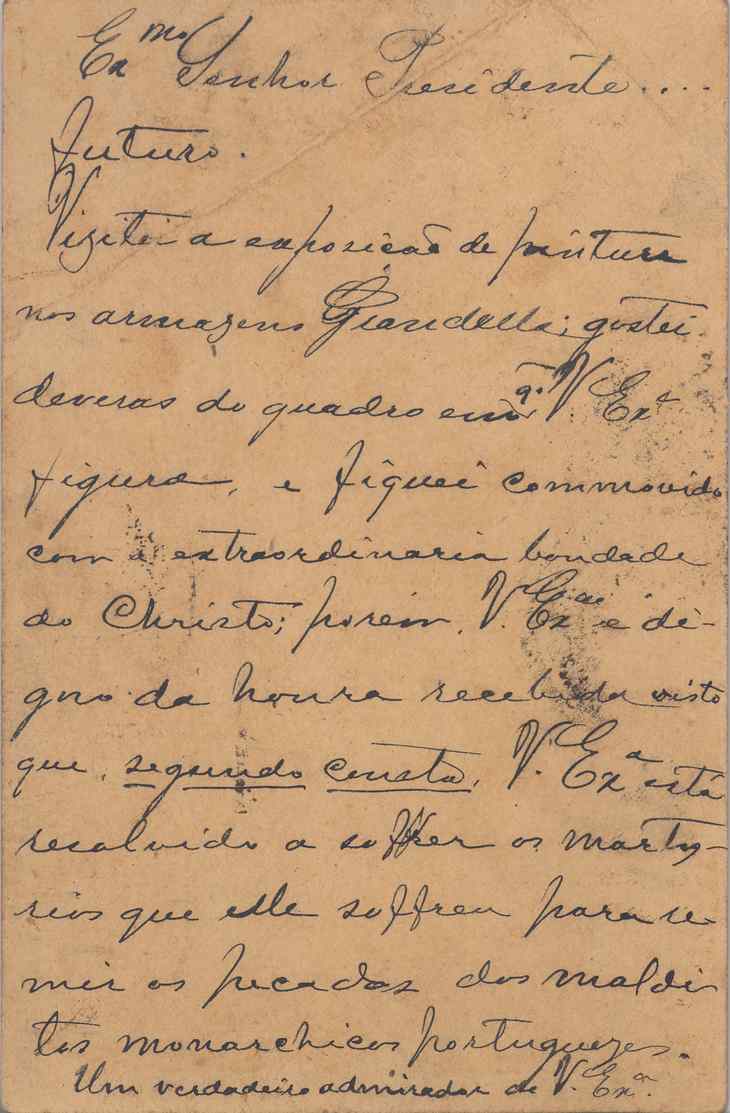 Exmo Senhor Presidente....
futuro.
Vizitei a exposicão de pintura
nos armazens Grandella; gostei
deveras do quadro em q. V. Exa
figura, e fiquei commovido
com a extraordinaria bondade
do Christo; porem, V. Exa é di-
gno da honra recebida visto
que, segundo consta, V. Exa está
resolvido a soffrer os marty-
rios que elle soffreu para re-
mir os pecados dos maldi-
tos monarchicos portuguezes.
Um verdadeiro admirador de V. Exa.